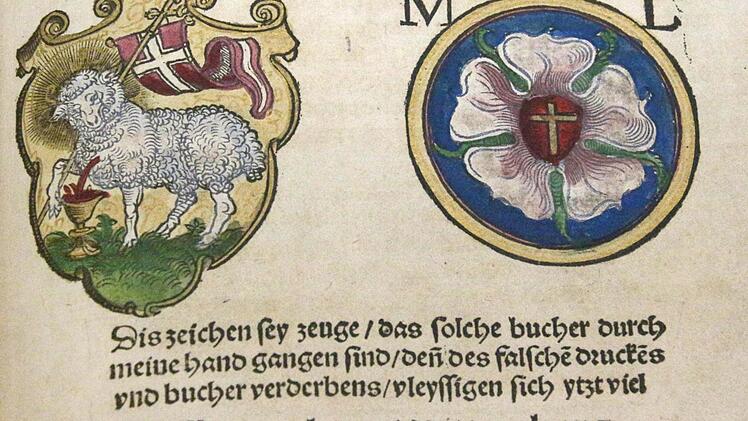 M L
Dis zeichen sey zeuge / das solche bucher durch
meine hand gangen sind / den̄ des falschē druckēs
vnd bucher verderbens / vleyssigen sich ytzt viel